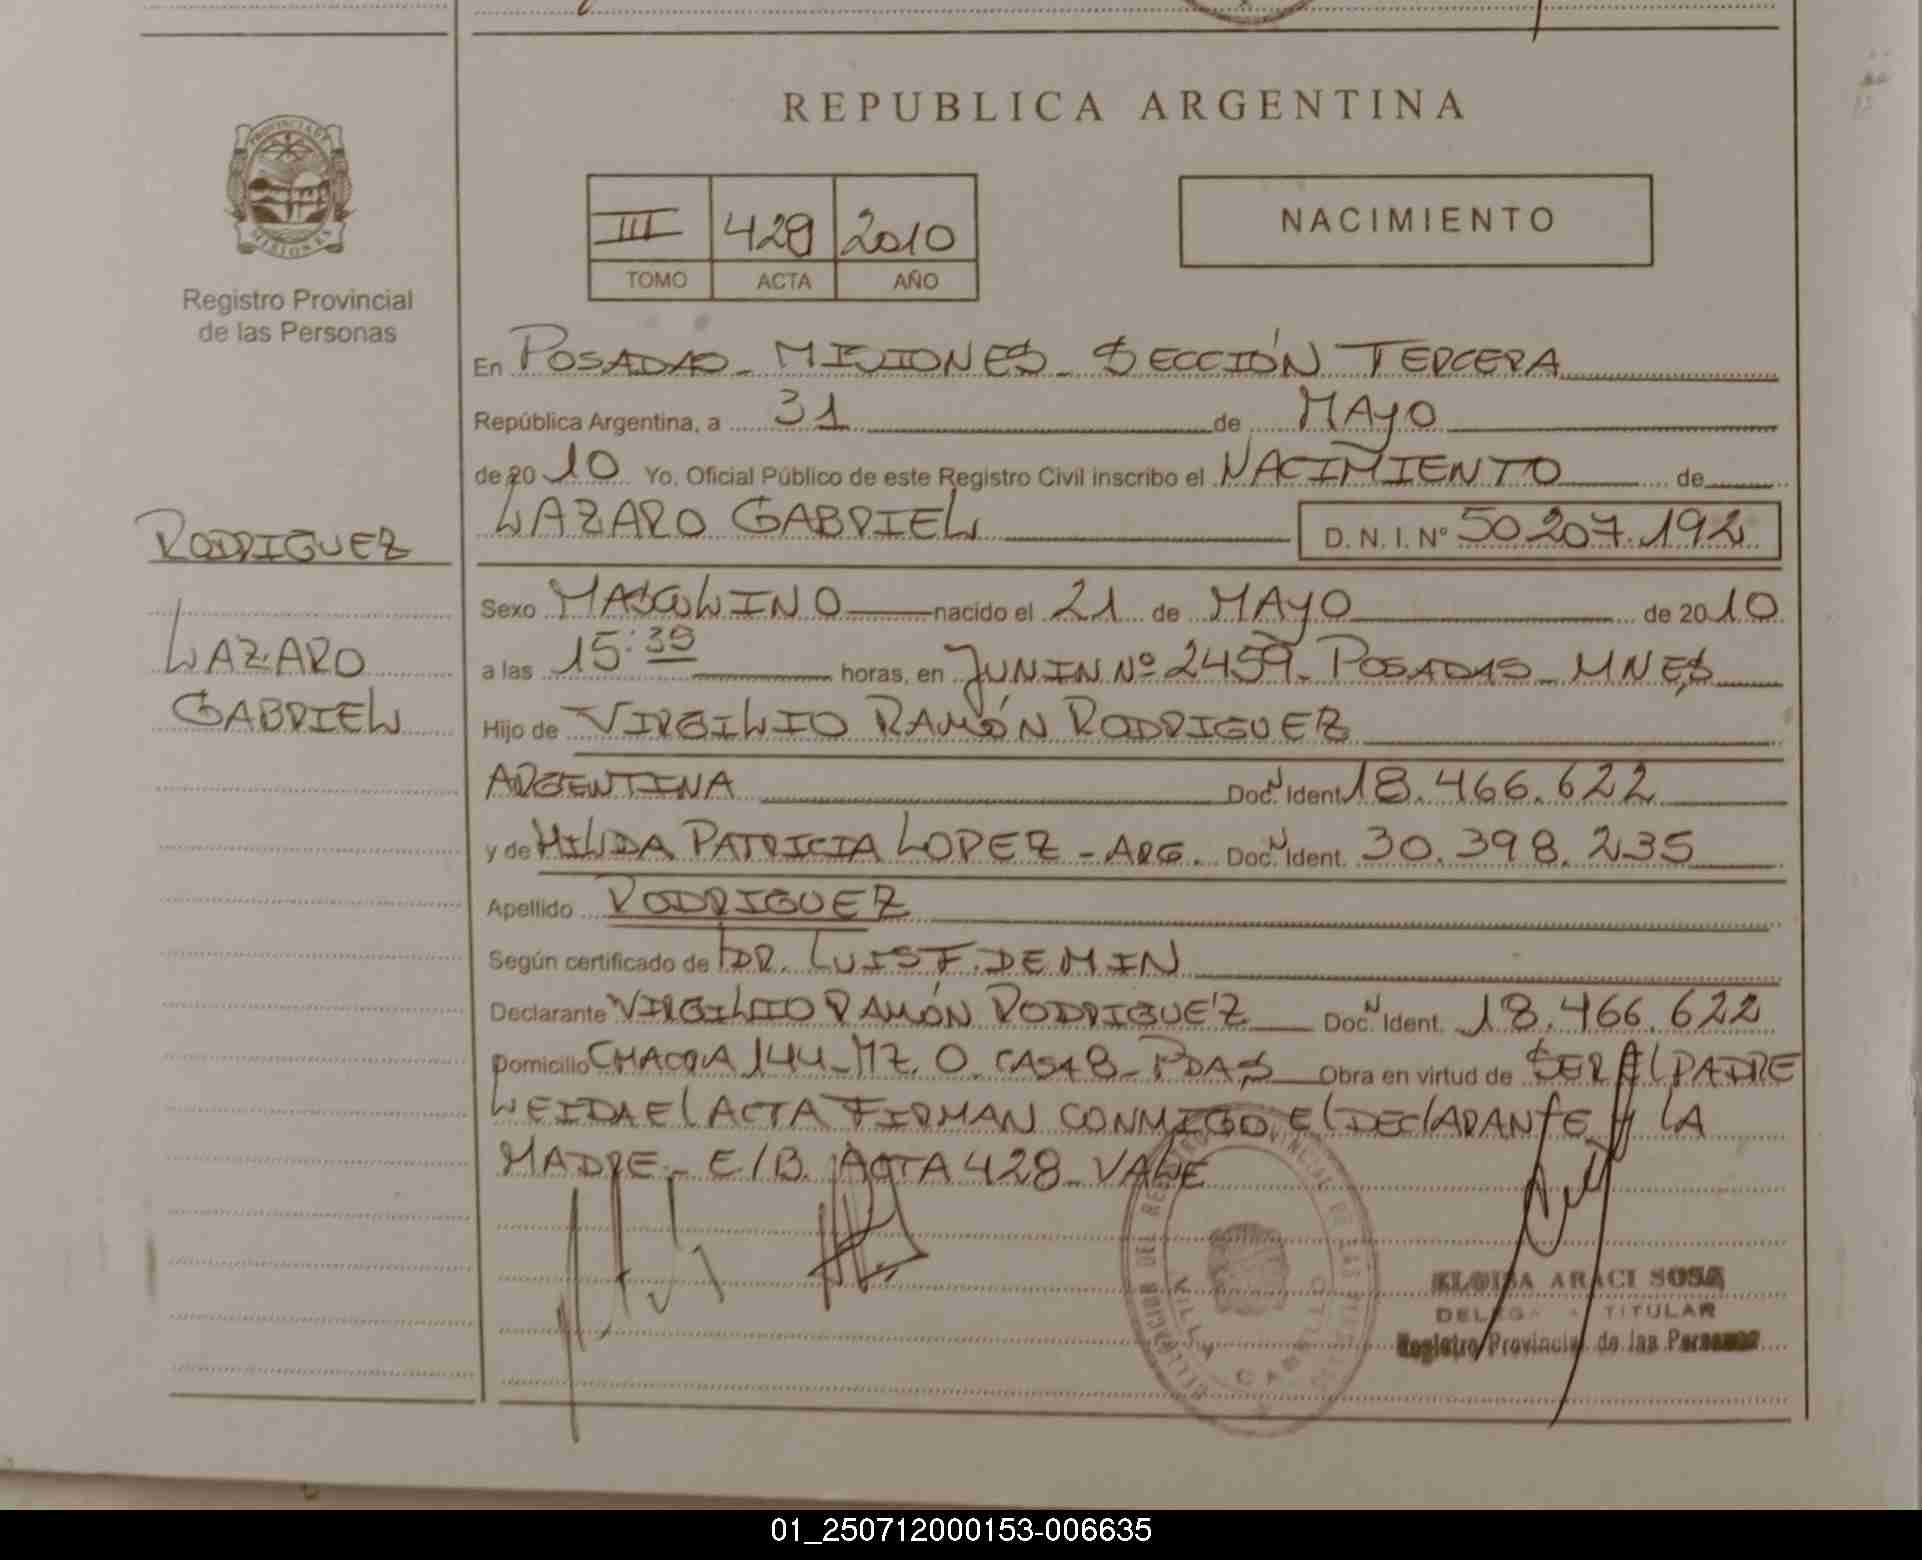 REPUBLICA ARGENTINA
PROVINCIA DE
MISIONES
Registro Provincial
de las Personas
III 429 2010
TOMO ACTA AÑO
NACIMIENTO
En POSADAS - MISIONES - SECCIÓN TERCERA
República Argentina, a 31 de MAYO
de 2010 Yo. Oficial Público de este Registro Civil inscribo el NACIMIENTO de
LAZARO GABRIEL D. N. I. Nº 50.207.192
RODRIGUEZ
LAZARO
GABRIEL
Sexo MASCULINO nacido el 21 de MAYO de 2010
a las 15:39 horas, en JUNIN Nº 2459 - POSADAS - MNES
Hijo de VIRGILIO RAMÓN RODRIGUEZ
ARGENTINA Doc. N Ident. 18.466.622
y de HILDA PATRICIA LOPEZ - ARG. Doc. N Ident. 30.398.235
Apellido RODRIGUEZ
Según certificado de DR. LUIS F. DEMIN
Declarante VIRGILIO RAMÓN RODRIGUEZ Doc. N Ident. 18.466.622
Domicilio CHACRA 144 - MZ. O. CASA 8 - PDAS Obra en virtud de SER El PADRE
LEIDA El ACTA FIRMAN CONMIGO El DEClARANTE Y LA
MADRE - E/B. ACTA 428 - VALE
ELOISA ARACI SOSA
TITULAR
Registro Provincial de las Personas
VILLA CABELLO
01_250712000153-006635